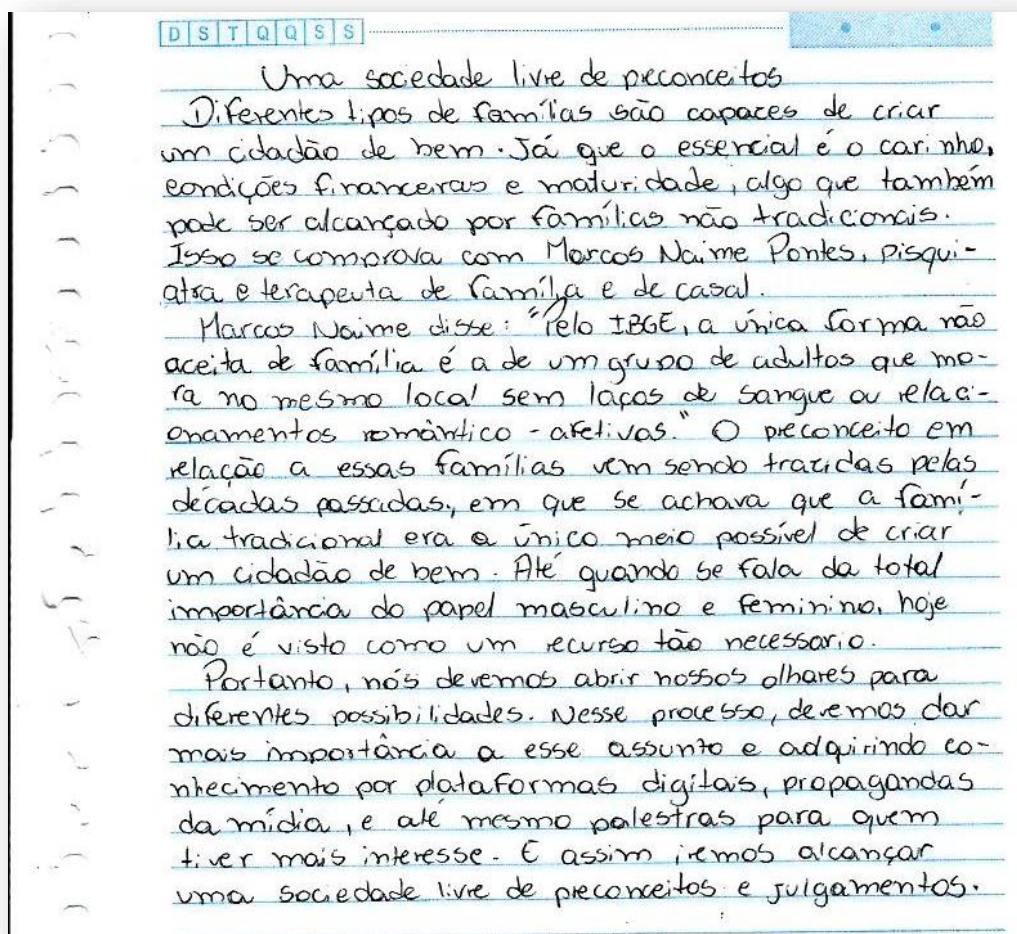 D S T Q Q S S
Uma sociedade livre de preconceitos
Diferentes tipos de famílias são capazes de criar
um cidadão de bem. Já que o essencial é o carinho,
condições financeiras e maturidade, algo que também
pode ser alcançado por famílias não tradicionais.
Isso se comprova com Marcos Naime Pontes, pisqui-
atra e terapeuta de família e de casal.
Marcos Naime disse: "Pelo IBGE, a única forma não
aceita de família é a de um grupo de adultos que mo-
ra no mesmo local sem laços de sangue ou relaci-
onamentos romântico-afetivos." O preconceito em
relação a essas famílias vem sendo trazidas pelas
décadas passadas, em que se achava que a famí-
lia tradicional era o único meio possível de criar
um cidadão de bem. Até quando se fala da total
importância do papel masculino e feminino, hoje
não é visto como um recurso tão necessario.
Portanto, nós devemos abrir nossos olhares para
diferentes possibilidades. Nesse processo, devemos dar
mais importância a esse assunto e adquirindo co-
nhecimento por plataformas digitais, propagandas
da mídia, e até mesmo palestras para quem
tiver mais interesse. E assim iremos alcançar
uma sociedade livre de preconceitos e julgamentos.